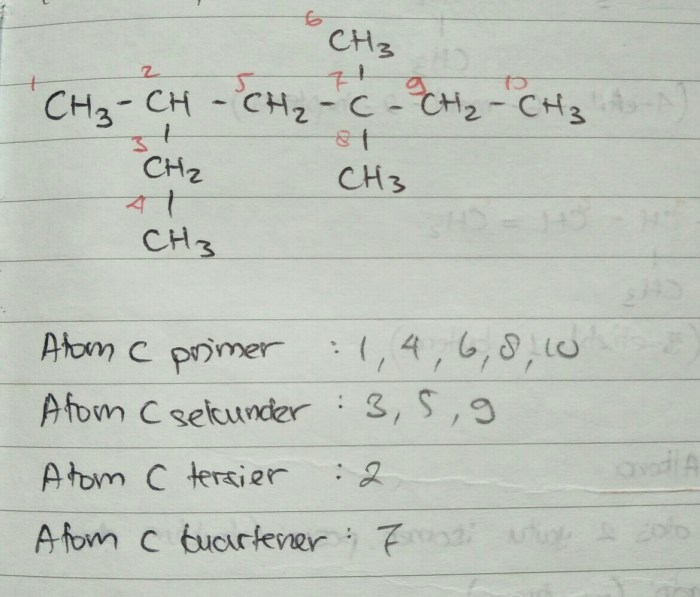 6
CH3
1 2 5 7 9 10
CH3 - CH - CH2 - C - CH2 - CH3
3 8
CH2 CH3
4
CH3
Atom C primer : 1, 4, 6, 8, 10
Atom C sekunder : 3, 5, 9
Atom C tersier : 2
Atom C kuartener : 7